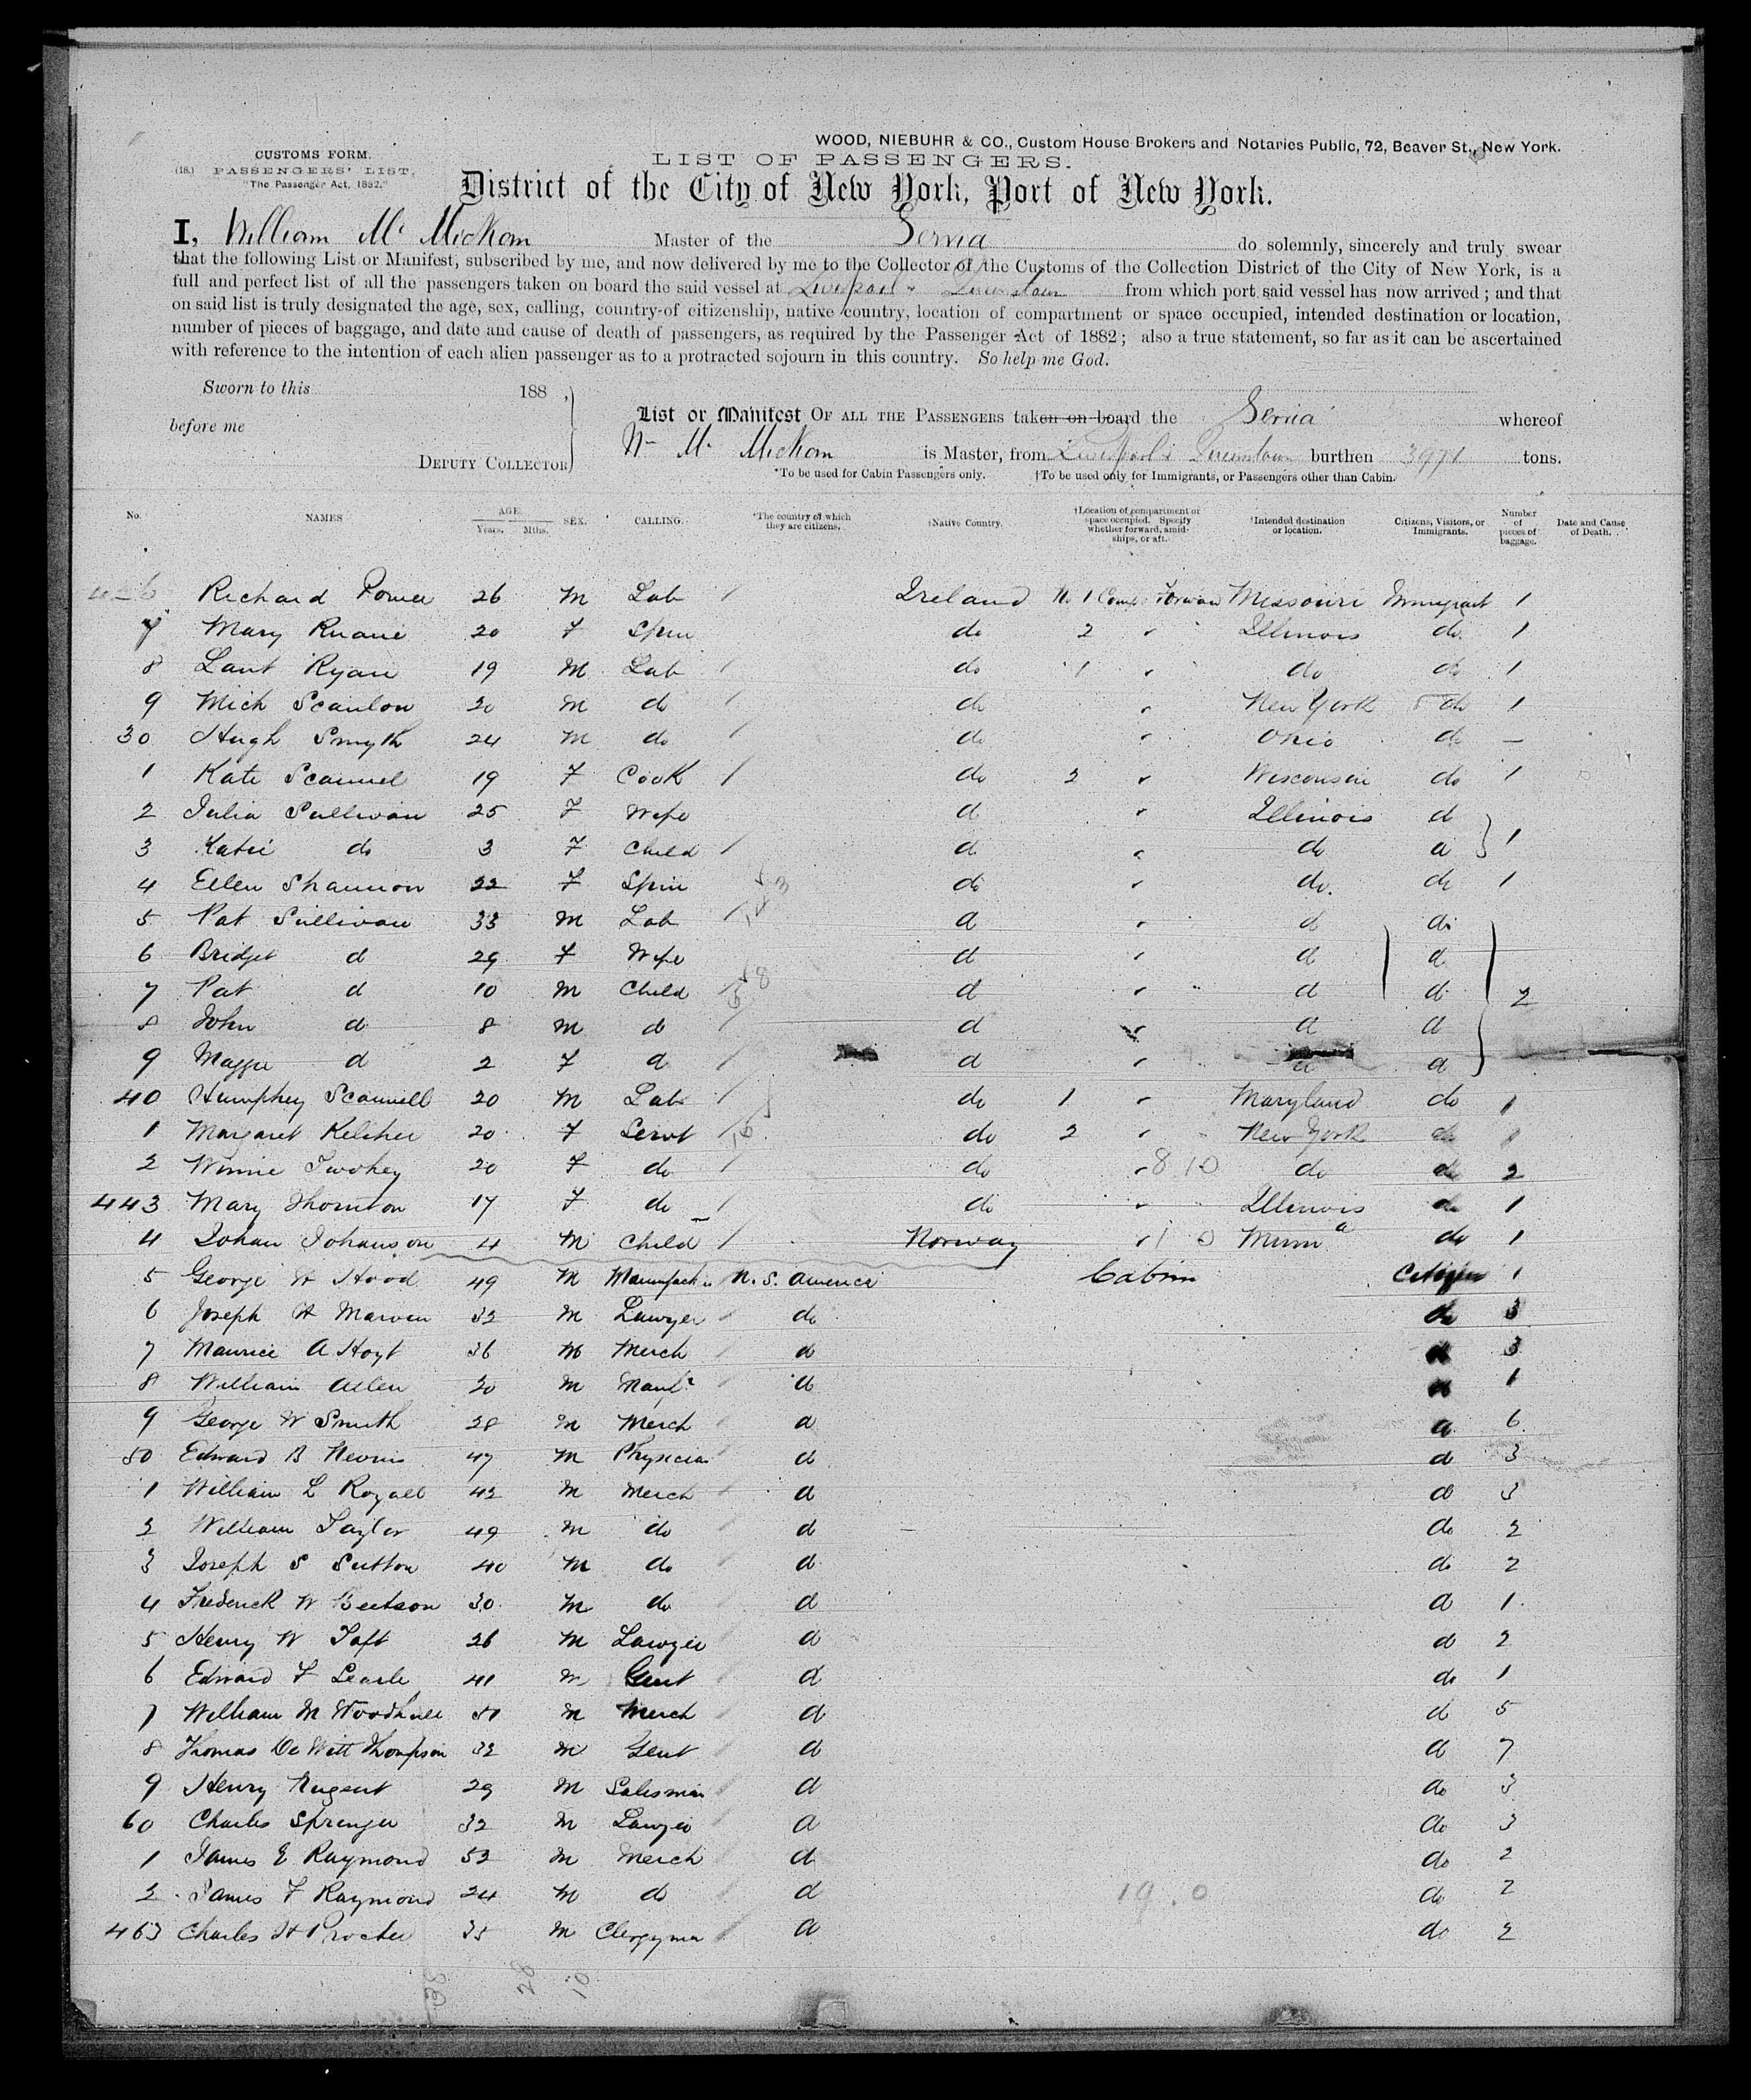 WOOD, NIEBUHR & CO., Custom House Brokers and Notaries Public, 72, Beaver St., New York.
CUSTOMS FORM.
LIST OF PASSENGERS.
(18.) PASSENGERS' LIST,
"The Passenger Act, 1882."
District of the City of New York, Port of New York.
I, William Mc Mickan Master of the Servia do solemnly, sincerely and truly swear
that the following List or Manifest, subscribed by me, and now delivered by me to the Collector of the Customs of the Collection District of the City of New York, is a
full and perfect list of all the passengers taken on board the said vessel at Liverpool & Queenstown from which port said vessel has now arrived; and that
on said list is truly designated the age, sex, calling, country of citizenship, native country, location of compartment or space occupied, intended destination or location,
number of pieces of baggage, and date and cause of death of passengers, as required by the Passenger Act of 1882; also a true statement, so far as it can be ascertained
with reference to the intention of each alien passenger as to a protracted sojourn in this country. So help me God.
Sworn to this 188 ,
before me
DEPUTY COLLECTOR
List or Manifest OF ALL THE PASSENGERS taken on board the Servia whereof
Wm Mc Mickan is Master, from Liverpool & Queenstown burthen 3971 tons.
*To be used for Cabin Passengers only. †To be used only for Immigrants, or Passengers other than Cabin.
No. NAMES AGE. Years. Mths. SEX. CALLING. *The country of which they are citizens. †Native Country. †Location of compartment or space occupied. Specify whether forward, amidships, or aft. †Intended destination or location. Citizens, Visitors, or Immigrants. Number of pieces of baggage. Date and Cause of Death.
426 Richard Power 26 M Lab Ireland No 1 Comp. Forward Missouri Immigrant 1
7 Mary Ruane 20 F Spin do 2 " Illinois do 1
8 Laut Ryan 19 M Lab do 1 " do do 1
9 Mich Scanlon 20 M do do " New York do 1
30 Hugh Smyth 24 M do do " Ohio do —
1 Kate Scannel 19 F Cook do 2 " Wisconsin do 1
2 Julia Sullivan 25 F Wife do " Illinois do
3 Katie do 3 F Child do " do do 1
4 Ellen Shannon 22 F Spin do " do do 1
5 Pat Sullivan 33 M Lab do " do do
6 Bridget do 29 F Wife do " do do
7 Pat do 10 M Child do " do do 2
8 John do 8 M do do " do do
9 Maggie do 2 F do do " do do
40 Humphey Scannell 20 M Lab do 1 " Maryland do 1
1 Margaret Kelcher 20 F Servt do 2 " New York do 1
2 Winnie Twohey 20 F do do " 8 10 do do 2
443 Mary Thornton 17 F do do " Illinois do 1
4 Johan Johanson 4 M Child Norway " 1 0 Minna do 1
5 George H Hood 49 M Manufactr U. S. America Cabin Citizen 1
6 Joseph H Marvin 32 M Lawyer do do 3
7 Maurice A Hoyt 36 M Merch do do 3
8 William Allen 30 M Manfr do do 1
9 George W Smith 28 M Merch do do 6
50 Edward B Nevins 47 M Physician do do 3
1 William L Royall 42 M Merch do do 3
2 William Taylor 49 M do do do 2
3 Joseph S Sutton 40 M do do do 2
4 Frederick W Beetson 30 M do do do 1
5 Henry W Taft 26 M Lawyer do do 2
6 Edward F Searle 41 M Gent do do 1
7 William M Woodhull 51 M Merch do do 5
8 Thomas De Witt Thompson 32 M Gent do do 7
9 Henry Nugent 29 M Salesman do do 3
60 Charles Sprenger 32 M Lawyer do do 3
1 James E Raymond 52 M Merch do do 2
2 James F Raymond 24 M do do 19.0 do 2
463 Charles H Procter 35 M Clergyman do do 2